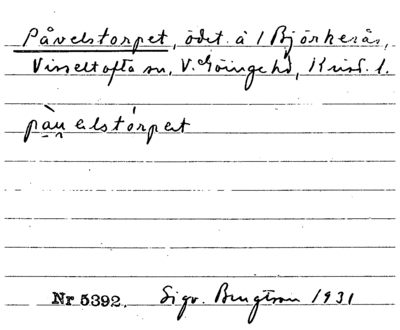 Påvelstorpet, ödet. å 1 Björkerås,
Visseltofta sn, V. Göinge hd, Krist. l.
pàu̯elstórpet
Nr 5392. Sigv. Bengtson 1931